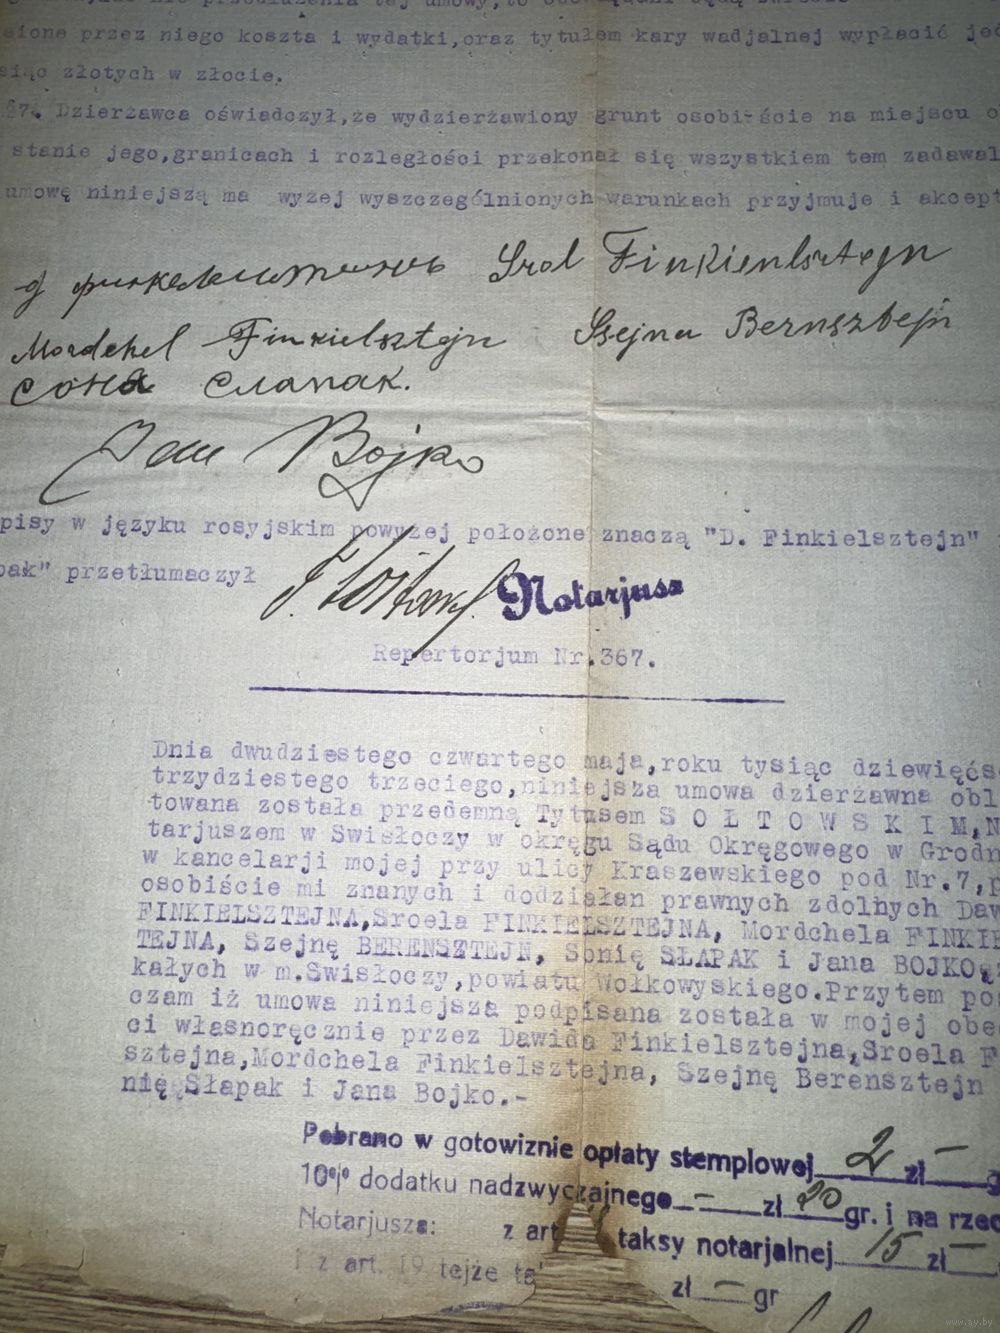 nie przedłużenia tej umowy, to
sione przez niego koszta i wydatki,oraz tytułem kary wadjalnej wypłacić jed
siąc złotych w złocie.
§7. Dzierżawca oświadczył,że wydzierżawiony grunt osobi-ście na miejscu o
stanie jego,granicach i rozległości przekonał się wszystkiem tem zadawal
umowę niniejszą na wyżej wyszczególnionych warunkach przyjmuje i akcept
Srol Finkielsztejn
Mordchel Finkielsztejn Szejna Bernsztejn
Соня Слапак.
Jan Bojko
pisy w języku rosyjskim powyżej położone znaczą "D. Finkielsztejn"
pak" przetłumaczył
Notarjusz
Repertorjum Nr.367.
Dnia dwudziestego czwartego maja,roku tysiąc dziewięćs
trzydziestego trzeciego,niniejsza umowa dzierżawna obl
towana została przedemną Tytusem S O Ł T O W S K I M,N
tarjuszem w Swisłoczy w okręgu Sądu Okręgowego w Grodn
w kancelarji mojej przy ulicy Kraszewskiego pod Nr.7,p
osobiście mi znanych i dodziałan prawnych zdolnych Daw
FINKIELSZTEJNA,Sroela FINKIELSZTEJNA, Mordchela FINKIE
TEJNA, Szejnę BERENSZTEJN, Sonię SŁAPAK i Jana BOJKO
kałych w m.Swisłoczy,powiatu Wołkowyskiego.Przytem poś
czam iż umowa niniejsza podpisana została w mojej obe
ci własnoręcznie przez Dawida Finkielsztejna,Sroela F
sztejna,Mordchela Finkielsztejna, Szejnę Berensztejn
nię Słapak i Jana Bojko.-
Pobrano w gotowiznie opłaty stemplowej 2 zł — g
10% dodatku nadzwyczajnego — zł 20 gr. i na rzec
Notarjusza: z art taksy notarjalnej 15 zł —
i z art. 19 tejże ta
zł — gr
www.ay.by